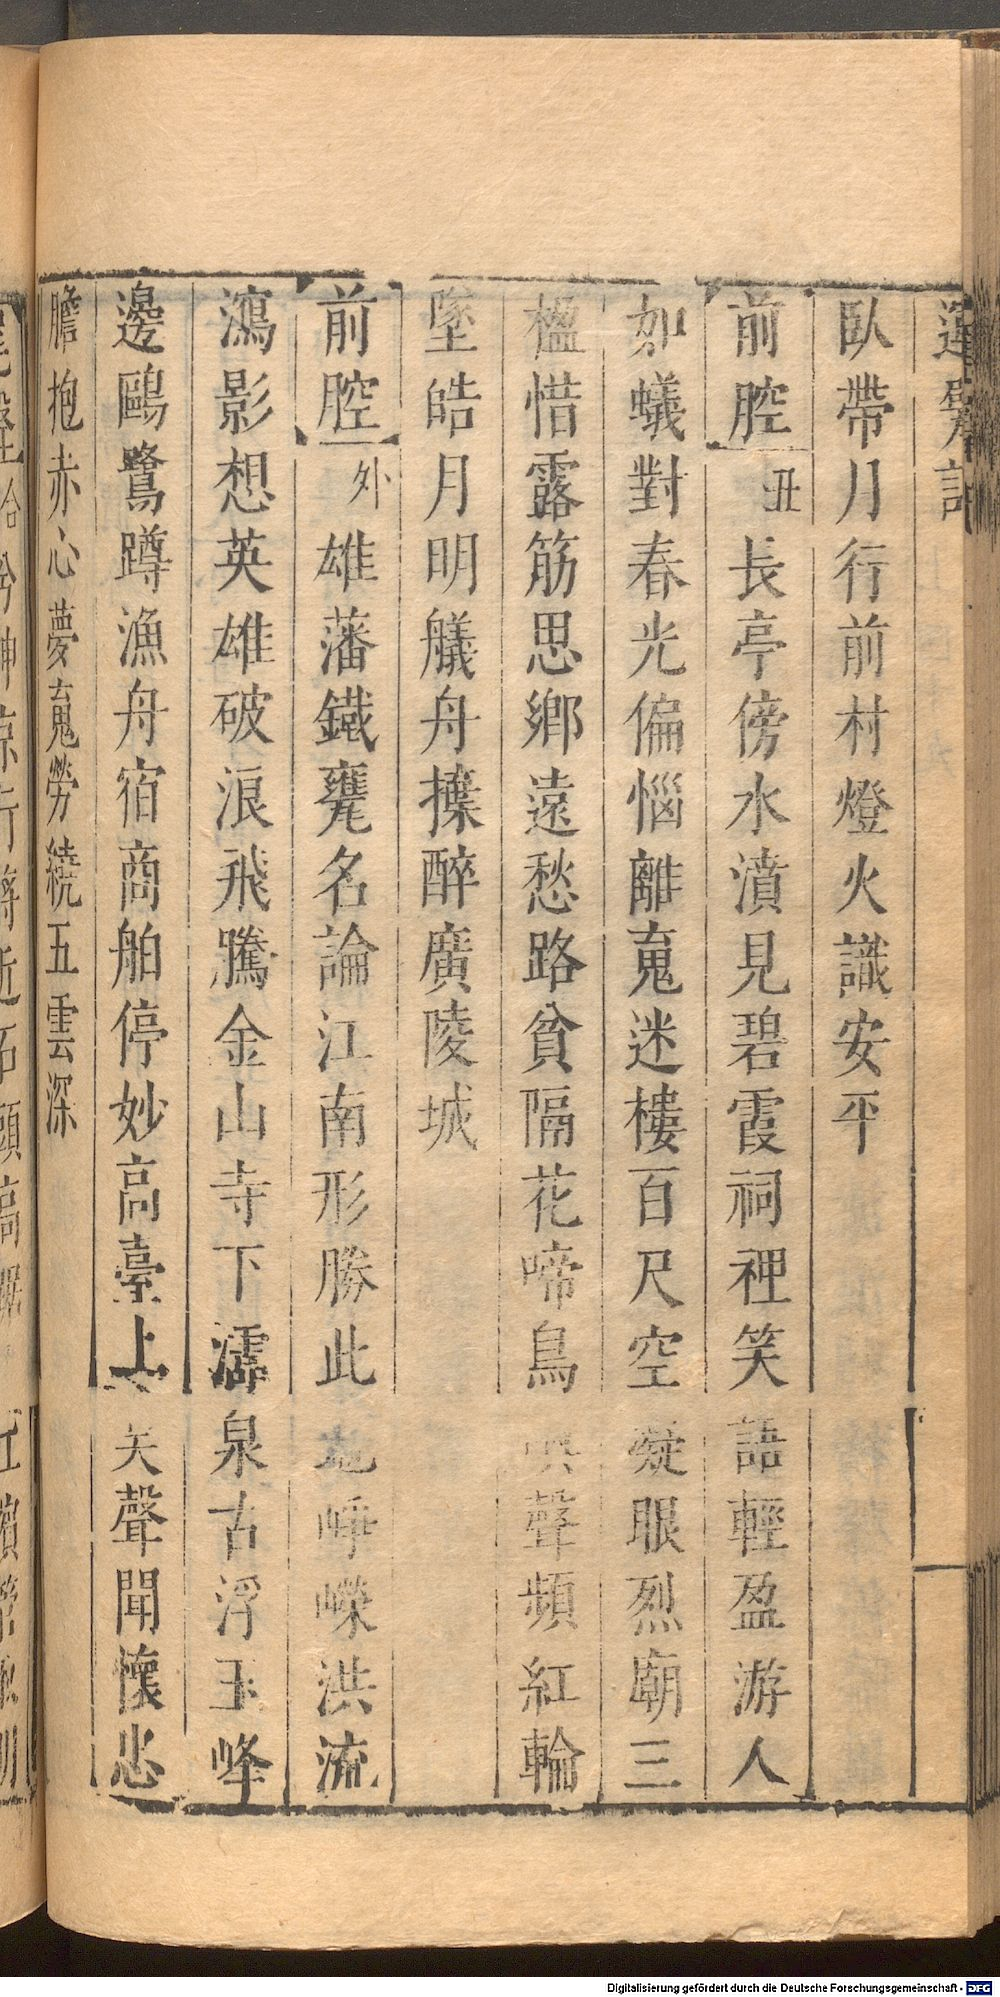 運甓記
臥帶月行前村燈火識安平
前腔丑長亭傍水濆見碧霞祠裡笑語輕盈游人
如蟻對春光偏惱離䰟迷樓百尺空凝眼烈廟三
楹惜露筋思鄉遠愁路貧隔花啼鳥哄聲頻紅輪
墜皓月明艤舟擈醉廣陵城
前腔外雄藩鐵甕名論江南形勝此地崢嶸洪流
瀉影想英雄破浪飛騰金山寺下濡泉古浮玉峰
邊鷗鷺蹲漁舟宿商舶停妙高臺上矢聲聞懷忠
膽抱赤心夢䰟勞繞五雲深
Digitalisierung gefördert durch die Deutsche Forschungsgemeinschaft - DFG